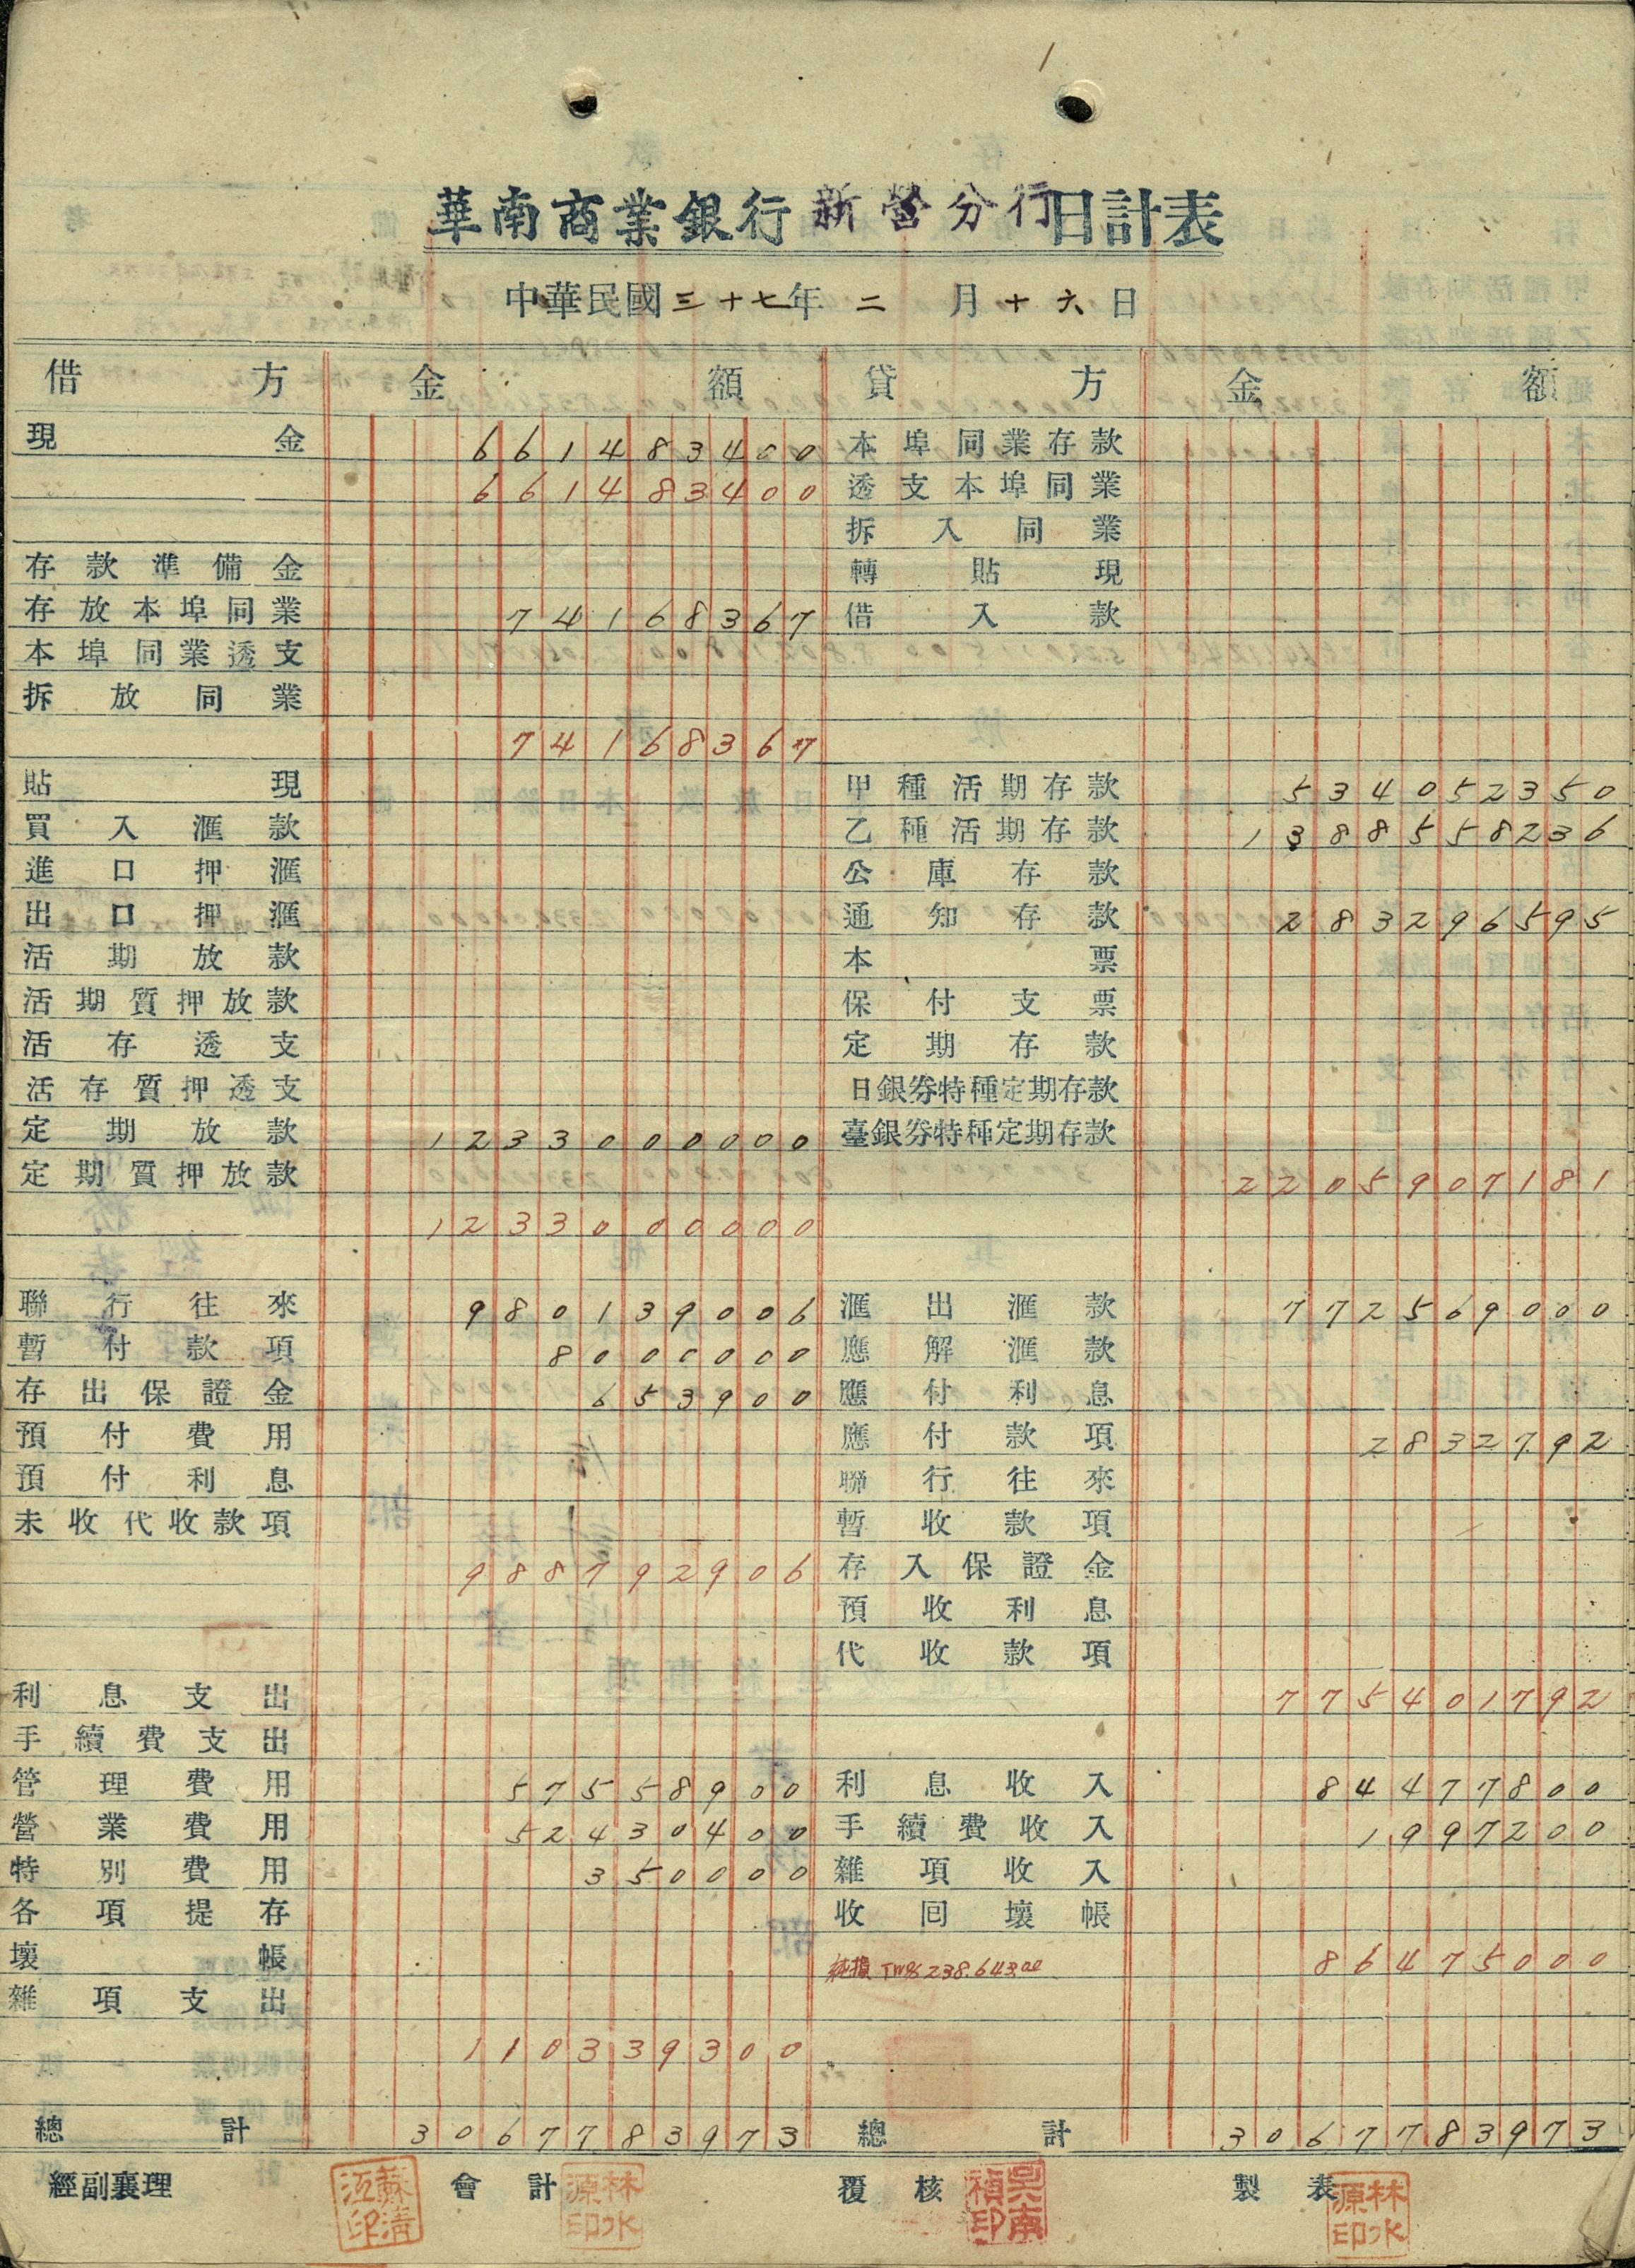 華南商業銀行新營分行日計表
中華民國三十七年二月十六日
借方 金額 貸方 金額
現金 661483400 本埠同業存款
661483400 透支本埠同業
拆入同業
存款準備金 轉貼現
存放本埠同業 74168367 借入款
本埠同業透支
拆放同業
74168367
貼現 甲種活期存款 534052350
買入滙款 乙種活期存款 1388558236
進口押滙 公庫存款
出口押滙 通知存款 283296595
活期放款 本票
活期質押放款 保付支票
活存透支 定期存款
活存質押透支 日銀券特種定期存款
定期放款 1233000000 臺銀券特種定期存款
定期質押放款 2205907181
1233000000
聯行往來 980139006 滙出滙款 772569000
暫付款項 8000000 應解滙款
存出保證金 653900 應付利息
預付費用 應付款項 2832792
預付利息 聯行往來
未收代收款項 暫收款項
988792906 存入保證金
預收利息
代收款項
利息支出 775401792
手續費支出
管理費用 57558900 利息收入 84477800
營業費用 52430400 手續費收入 1997200
特別費用 350000 雜項收入
各項提存 收回壞帳
壞帳 純損 TW$238.643.00 86475000
雜項支出
110339300
總計 3067783973 總計 3067783973
經副襄理 蘇清江印 會計 林水源印 覆核 吳南禎印 製表 林水源印